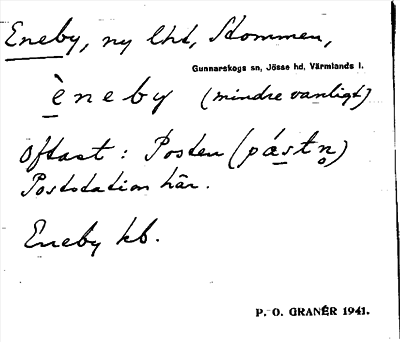 Eneby, ny lht, Stommen,
Gunnarskogs sn, Jösse hd, Värmlands l.
èneby (mindre vanligt)
oftast: Posten (pástn̥)
Poststation här.
Eneby kb.
P. O. GRANÉR 1941.